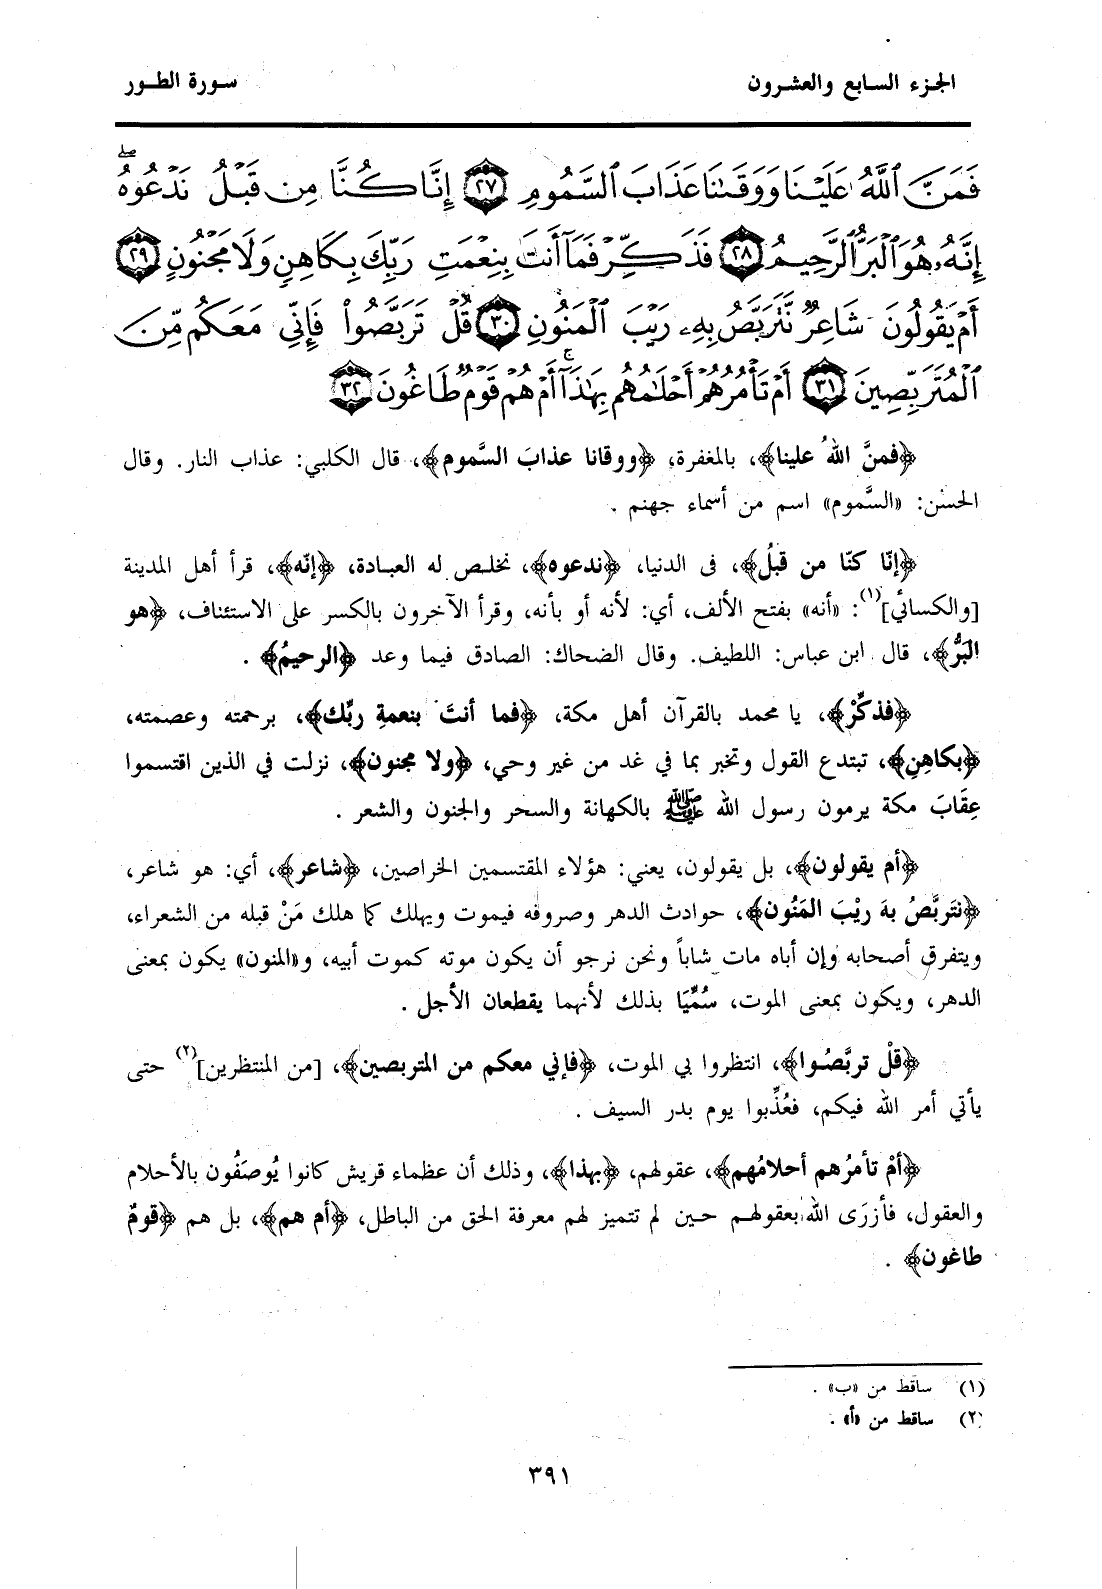 الجزء السابع والعشرون
سورة الطور
فَمَنَّ ٱللَّهُ عَلَيْنَا وَوَقَىٰنَا عَذَابَ ٱلسَّمُومِ ٢٧ إِنَّا كُنَّا مِن قَبْلُ نَدْعُوهُ ۖ
إِنَّهُۥ هُوَ ٱلْبَرُّ ٱلرَّحِيمُ ٢٨ فَذَكِّرْ فَمَآ أَنتَ بِنِعْمَتِ رَبِّكَ بِكَاهِنٍ وَلَا مَجْنُونٍ ٢٩
أَمْ يَقُولُونَ شَاعِرٌ نَّتَرَبَّصُ بِهِۦ رَيْبَ ٱلْمَنُونِ ٣٠ قُلْ تَرَبَّصُوا۟ فَإِنِّي مَعَكُم مِّنَ
ٱلْمُتَرَبِّصِينَ ٣١ أَمْ تَأْمُرُهُمْ أَحْلَٰمُهُم بِهَٰذَآ ۚ أَمْ هُمْ قَوْمٌ طَاغُونَ ٣٢
﴿فمنَّ اللهُ علينا﴾، بالمغفرة، ﴿ووقانا عذابَ السَّموم﴾، قال الكلبي: عذاب النار. وقال
الحسن: «السَّموم» اسم من أسماء جهنم .
﴿إنّا كنّا من قبلُ﴾، فى الدنيا، ﴿ندعوه﴾، نخلص له العبادة، ﴿إنّه﴾، قرأ أهل المدينة
[والكسائي](١): «أنه» بفتح الألف، أي: لأنه أو بأنه، وقرأ الآخرون بالكسر على الاستئناف، ﴿هو
البَرُّ﴾، قال ابن عباس: اللطيف. وقال الضحاك: الصادق فيما وعد ﴿الرحيمُ﴾ .
﴿فذكِّرْ﴾، يا محمد بالقرآن أهل مكة، ﴿فما أنتَ بنعمةِ ربِّك﴾، برحمته وعصمته،
﴿بكاهِنٍ﴾، تبتدع القول وتخبر بما في غد من غير وحي، ﴿ولا مجنون﴾، نزلت في الذين اقتسموا
عِقَابَ مكة يرمون رسول الله ﷺ بالكهانة والسحر والجنون والشعر .
﴿أم يقولون﴾، بل يقولون، يعني: هؤلاء المقتسمين الخراصين، ﴿شاعر﴾، أي: هو شاعر،
﴿نتَربَّصُ به ريْبَ المَنُون﴾، حوادث الدهر وصروفه فيموت ويهلك كما هلك مَنْ قبله من الشعراء،
ويتفرق أصحابه وإن أباه مات شاباً ونحن نرجو أن يكون موته كموت أبيه، و«المنون» يكون بمعنى
الدهر، ويكون بمعنى الموت، سُمِّيَا بذلك لأنهما يقطعان الأجل .
﴿قلْ تربَّصُوا﴾، انتظروا بي الموت، ﴿فإني معكم من المتربصين﴾، [من المنتظرين](٢) حتى
يأتي أمر الله فيكم، فعُذِّبوا يوم بدر السيف .
﴿أمْ تأمرُهم أحلامُهم﴾، عقولهم، ﴿بهذا﴾، وذلك أن عظماء قريش كانوا يُوصَفُون بالأحلام
والعقول، فأزرَى الله بعقولهم حين لم تتميز لهم معرفة الحق من الباطل، ﴿أم هم﴾، بل هم ﴿قومٌ
طاغون﴾ .
(١) ساقط من «ب» .
(٢) ساقط من «أ» .
٣٩١